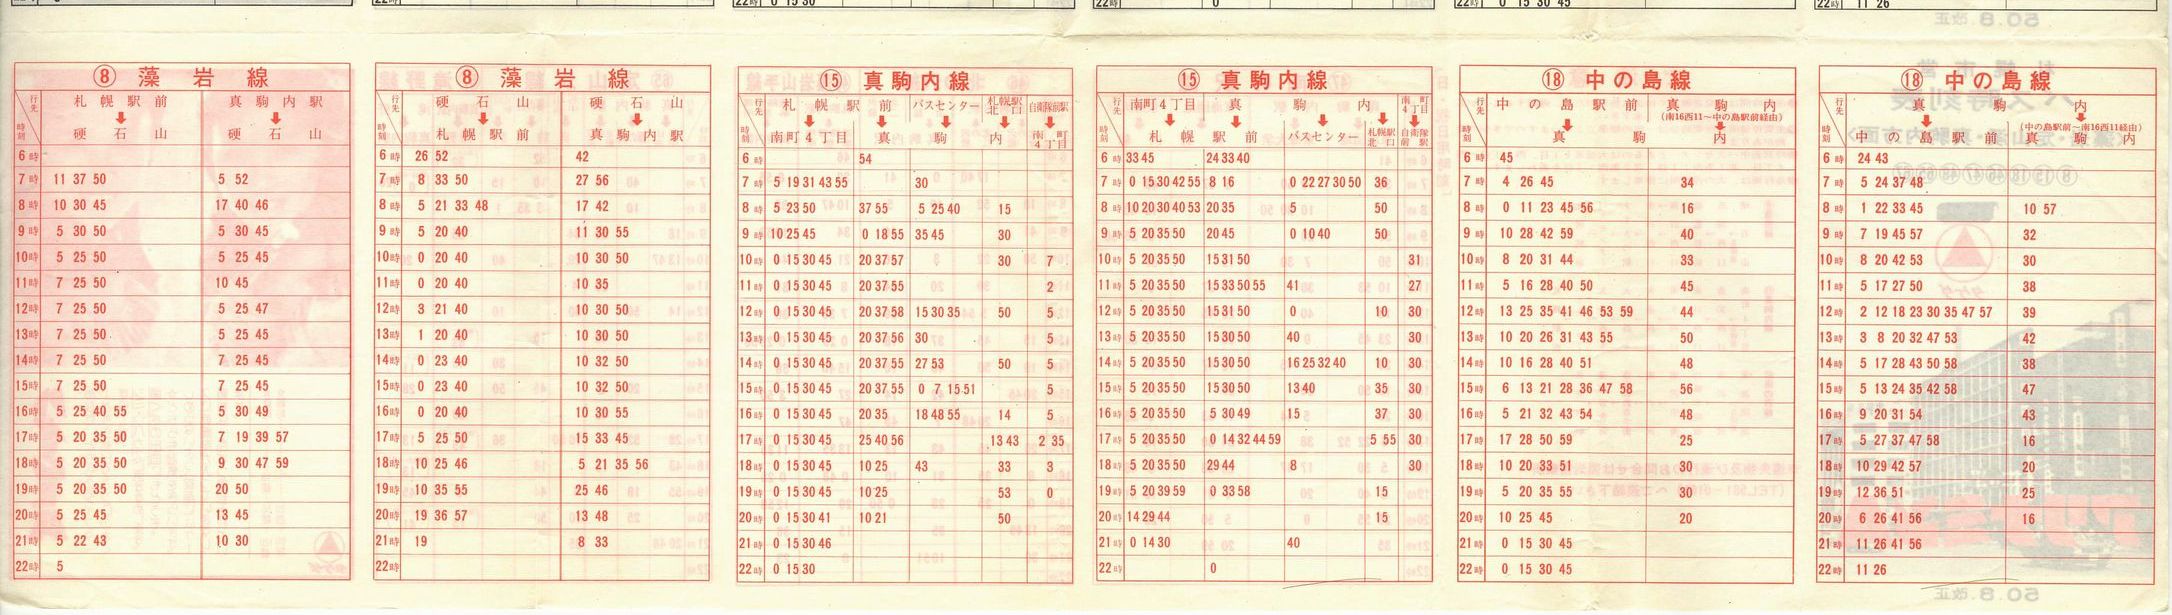 22時 0 15 30
22時 0
22時 0 15 30 45
22時 11 26
⑧ 藻岩線
行先 札幌駅前 真駒内駅
時刻 硬石山 硬石山
6時
7時 11 37 50 5 52
8時 10 30 45 17 40 46
9時 5 30 50 5 30 45
10時 5 25 50 5 25 45
11時 7 25 50 10 45
12時 7 25 50 5 25 47
13時 7 25 50 5 25 45
14時 7 25 50 7 25 45
15時 7 25 50 7 25 45
16時 5 25 40 55 5 30 49
17時 5 20 35 50 7 19 39 57
18時 5 20 35 50 9 30 47 59
19時 5 20 35 50 20 50
20時 5 25 45 13 45
21時 5 22 43 10 30
22時 5
⑧ 藻岩線
行先 硬石山 硬石山
時刻 札幌駅前 真駒内駅
6時 26 52 42
7時 8 33 50 27 56
8時 5 21 33 48 17 42
9時 5 20 40 11 30 55
10時 0 20 40 10 30 50
11時 0 20 40 10 35
12時 3 21 40 10 30 50
13時 1 20 40 10 30 50
14時 0 23 40 10 32 50
15時 0 23 40 10 32 50
16時 0 20 40 10 30 55
17時 5 25 50 15 33 45
18時 10 25 46 5 21 35 56
19時 10 35 55 25 46
20時 19 36 57 13 48
21時 19 8 33
22時
⑮ 真駒内線
行先 札幌駅前 バスセンター 札幌駅北口 自衛隊前駅
時刻 南町4丁目 真駒内 南町4丁目
6時 54
7時 5 19 31 43 55 30
8時 5 23 50 37 55 5 25 40 15
9時 10 25 45 0 18 55 35 45 30
10時 0 15 30 45 20 37 57 30 7
11時 0 15 30 45 20 37 55 2
12時 0 15 30 45 20 37 58 15 30 35 50 5
13時 0 15 30 45 20 37 56 30 5
14時 0 15 30 45 20 37 55 27 53 50 5
15時 0 15 30 45 20 37 55 0 7 15 51 5
16時 0 15 30 45 20 35 18 48 55 14 5
17時 0 15 30 45 25 40 56 13 43 2 35
18時 0 15 30 45 10 25 43 33 3
19時 0 15 30 45 10 25 53 0
20時 0 15 30 41 10 21 50
21時 0 15 30 46
22時 0 15 30
⑮ 真駒内線
行先 南町4丁目 真駒内 南町4丁目
時刻 札幌駅前 バスセンター 札幌駅北口 自衛隊前駅
6時 33 45 24 33 40
7時 0 15 30 42 55 8 16 0 22 27 30 50 36
8時 10 20 30 40 53 20 35 5 50
9時 5 20 35 50 20 45 0 10 40 50
10時 5 20 35 50 15 31 50 31
11時 5 20 35 50 15 33 50 55 41 27
12時 5 20 35 50 15 31 50 0 10 30
13時 5 20 35 50 15 30 50 40 30
14時 5 20 35 50 15 30 50 16 25 32 40 10 30
15時 5 20 35 50 15 30 50 13 40 35 30
16時 5 20 35 50 5 30 49 15 37 30
17時 5 20 35 50 0 14 32 44 59 5 55 30
18時 5 20 35 50 29 44 8 30
19時 5 20 39 59 0 33 58 15
20時 14 29 44 15
21時 0 14 30 40
22時 0
⑱ 中の島線
行先 中の島駅前 真駒内
(南16西11~中の島駅前経由)
時刻 真駒内 真駒内
6時 45
7時 4 26 45 34
8時 0 11 23 45 56 16
9時 10 28 42 59 40
10時 8 20 31 44 33
11時 5 16 28 40 50 45
12時 13 25 35 41 46 53 59 44
13時 10 20 26 31 43 55 50
14時 10 16 28 40 51 48
15時 6 13 21 28 36 47 58 56
16時 5 21 32 43 54 48
17時 17 28 50 59 25
18時 10 20 33 51 30
19時 5 20 35 55 30
20時 10 25 45 20
21時 0 15 30 45
22時 0 15 30 45
⑱ 中の島線
行先 真駒内
(中の島駅前~南16西11経由)
時刻 中の島駅前 真駒内
6時 24 43
7時 5 24 37 48
8時 1 22 33 45 10 57
9時 7 19 45 57 32
10時 8 20 42 53 30
11時 5 17 27 50 38
12時 2 12 18 23 30 35 47 57 39
13時 3 8 20 32 47 53 42
14時 5 17 28 43 50 58 38
15時 5 13 24 35 42 58 47
16時 9 20 31 54 43
17時 5 27 37 47 58 16
18時 10 29 42 57 20
19時 12 36 51 25
20時 6 26 41 56 16
21時 11 26 41 56
22時 11 26